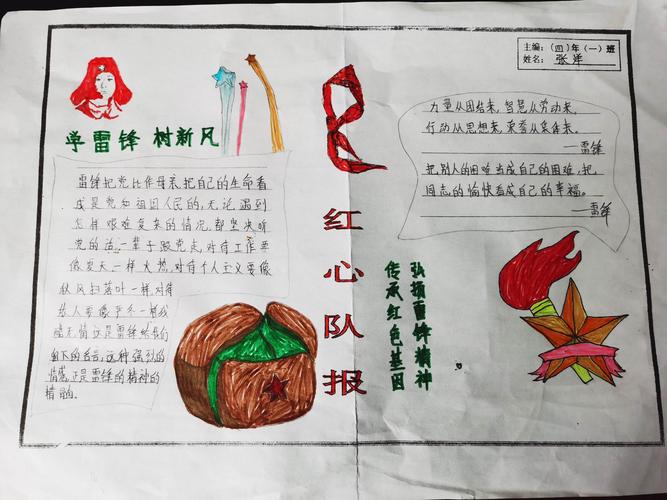 主编:(四)年(一)班
姓名: 张洋
学雷锋 树新风
雷锋把党比作母亲,把自己的生命看
成是党和祖国人民的,无论遇到
怎样艰难复杂的情况,都坚决听
党的话,一辈子跟党走,对待工作要
像夏天一样火热,对待个人主义要像
秋风扫落叶一样,对待
敌人要像严冬一样残
酷无情这是雷锋给我们
留下的名言,这种强烈的
情感正是雷锋的精神的
精
红心队报
力量从团结来,智慧从劳动来,
行动从思想来,荣誉从集体来。
——雷锋
把别人的困难当成自己的困难,把
同志的愉快看成自己的幸福。
——雷锋
弘扬雷锋精神
传承红色基因